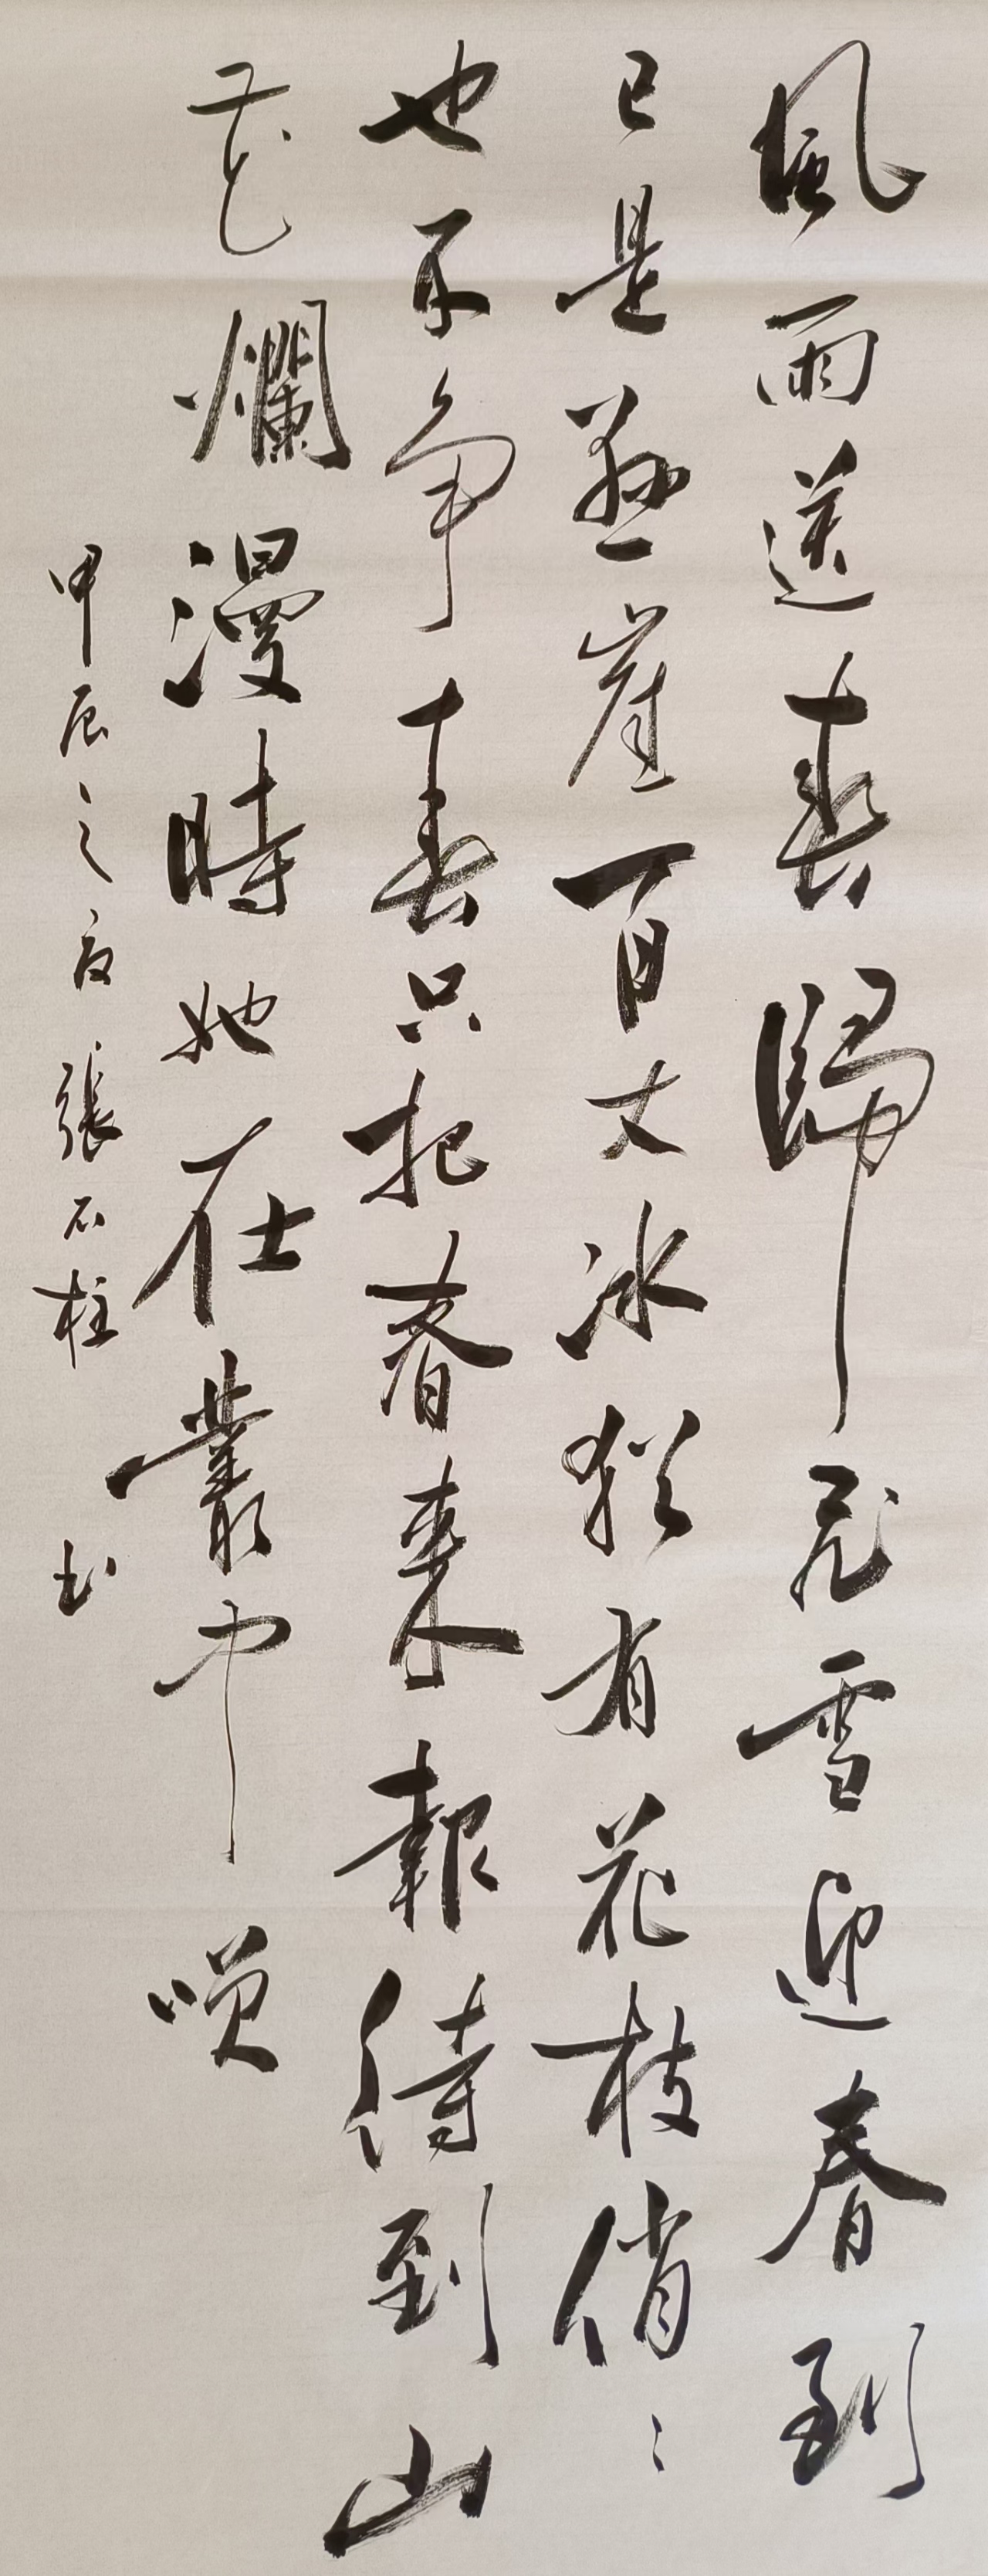 風雨送春歸飛雪迎春到
已是懸崖百丈冰猶有花枝俏〻
也不争春只把春來報待到山
花爛漫時她在叢中笑
甲辰之夏張石柱书